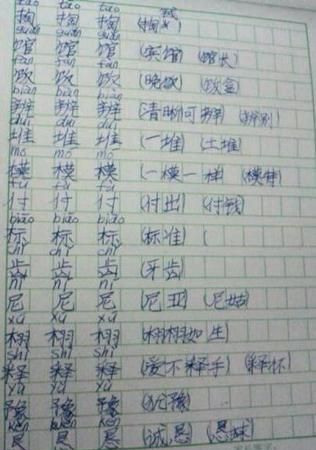 tao tao tao
掏 掏 掏 (掏
guǎn guǎn guǎn
馆 馆 馆 (宾馆) (馆长)
fàn fàn fàn
饭 饭 饭 (晚饭) (饭盒)
biàn biàn biàn
辨 辨 辨 (清晰可辨) (辨别)
duī duī duī
堆 堆 堆 (一堆) (土堆)
mó mó mó
模 模 模 (一模一样) (模样)
fù fù fù
付 付 付 (付出) (付钱)
biāo biāo biāo
标 标 标 (标准) (
chǐ chǐ chǐ
齿 齿 齿 (牙齿)
ní ní ní
尼 尼 尼 (尼亚) (尼姑)
xǔ xǔ xǔ
栩 栩 栩 (栩栩如生)
shì shì shì
释 释 释 (爱不释手) (释怀)
yù yù yù
豫 豫 豫 (犹豫)
kěn kěn kěn
恳 恳 恳 (诚恳) (恳求)